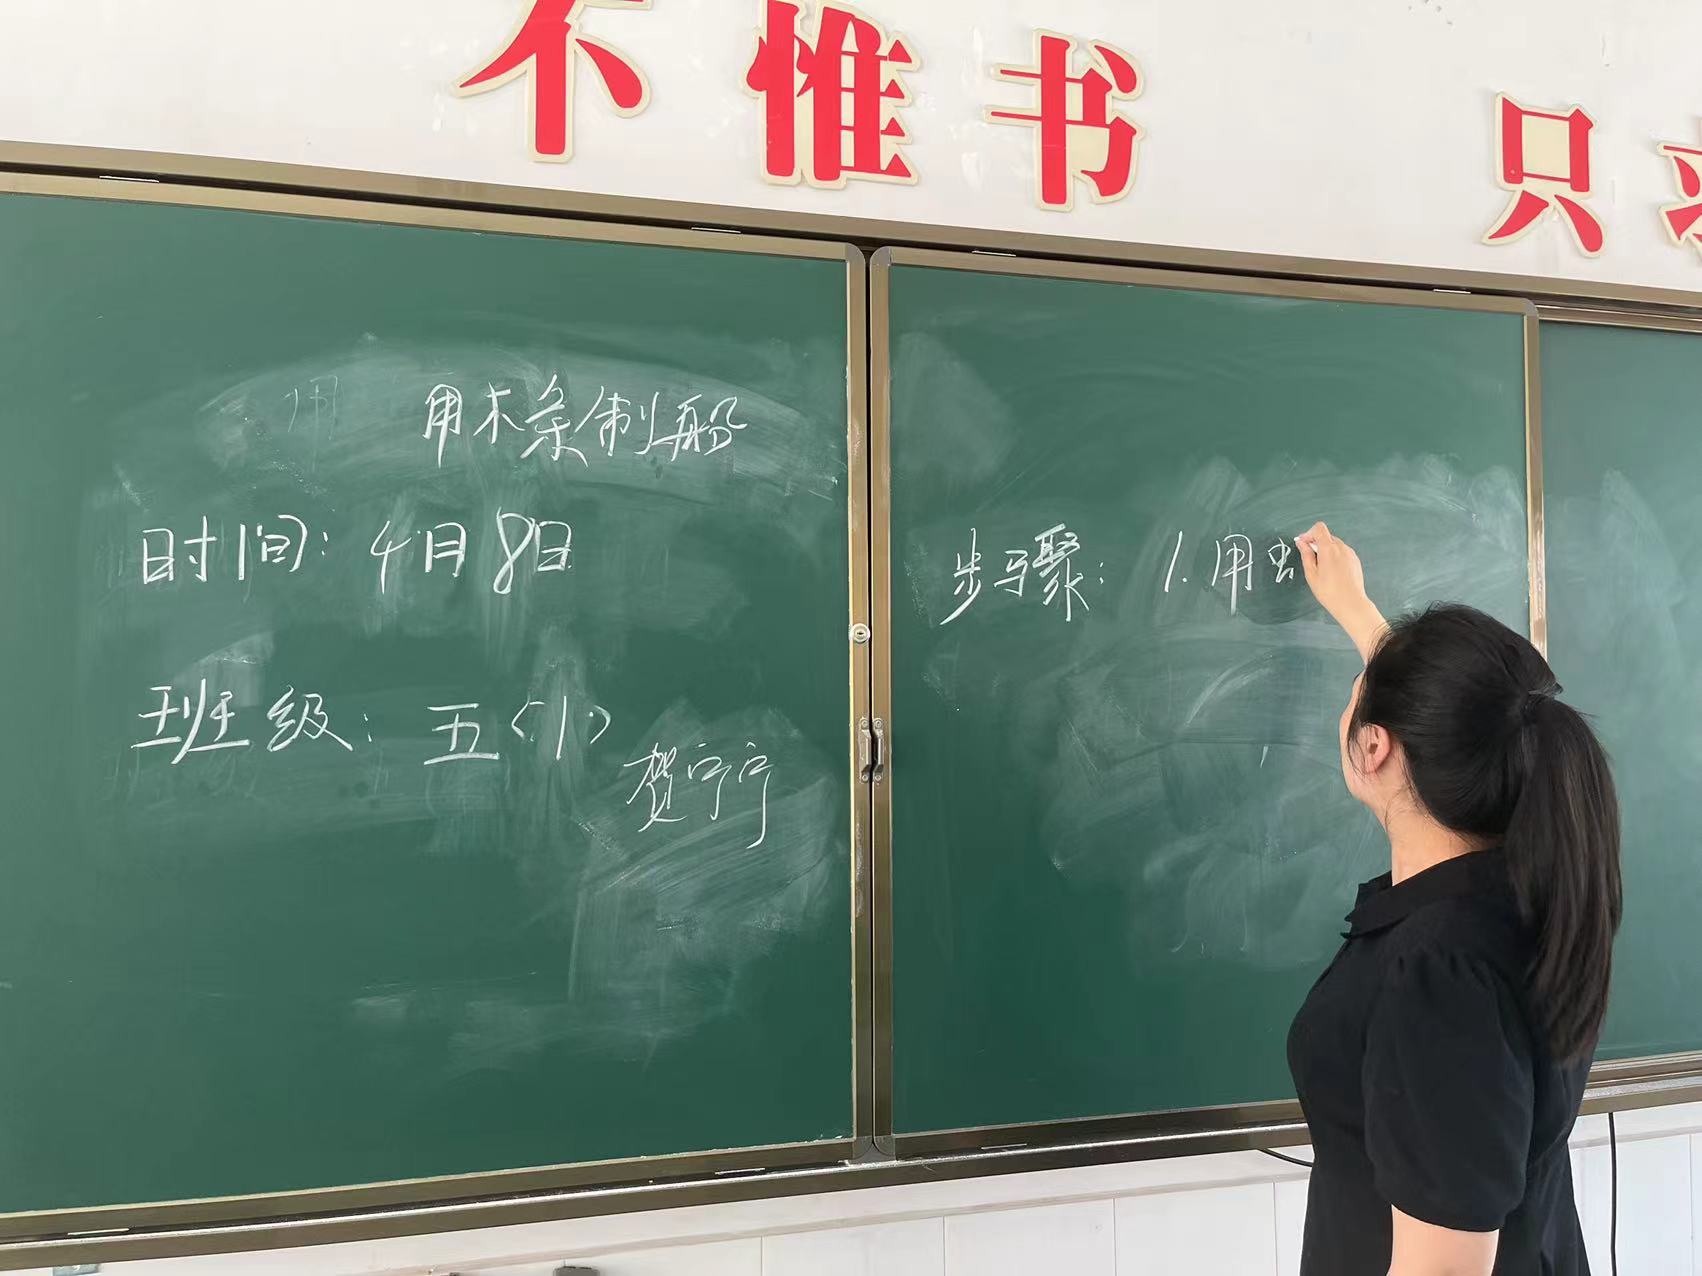 不惟书 只
用 用木条制船
时间：4月8日
班级：五〈1〉
贺宁宁
步骤：1.用